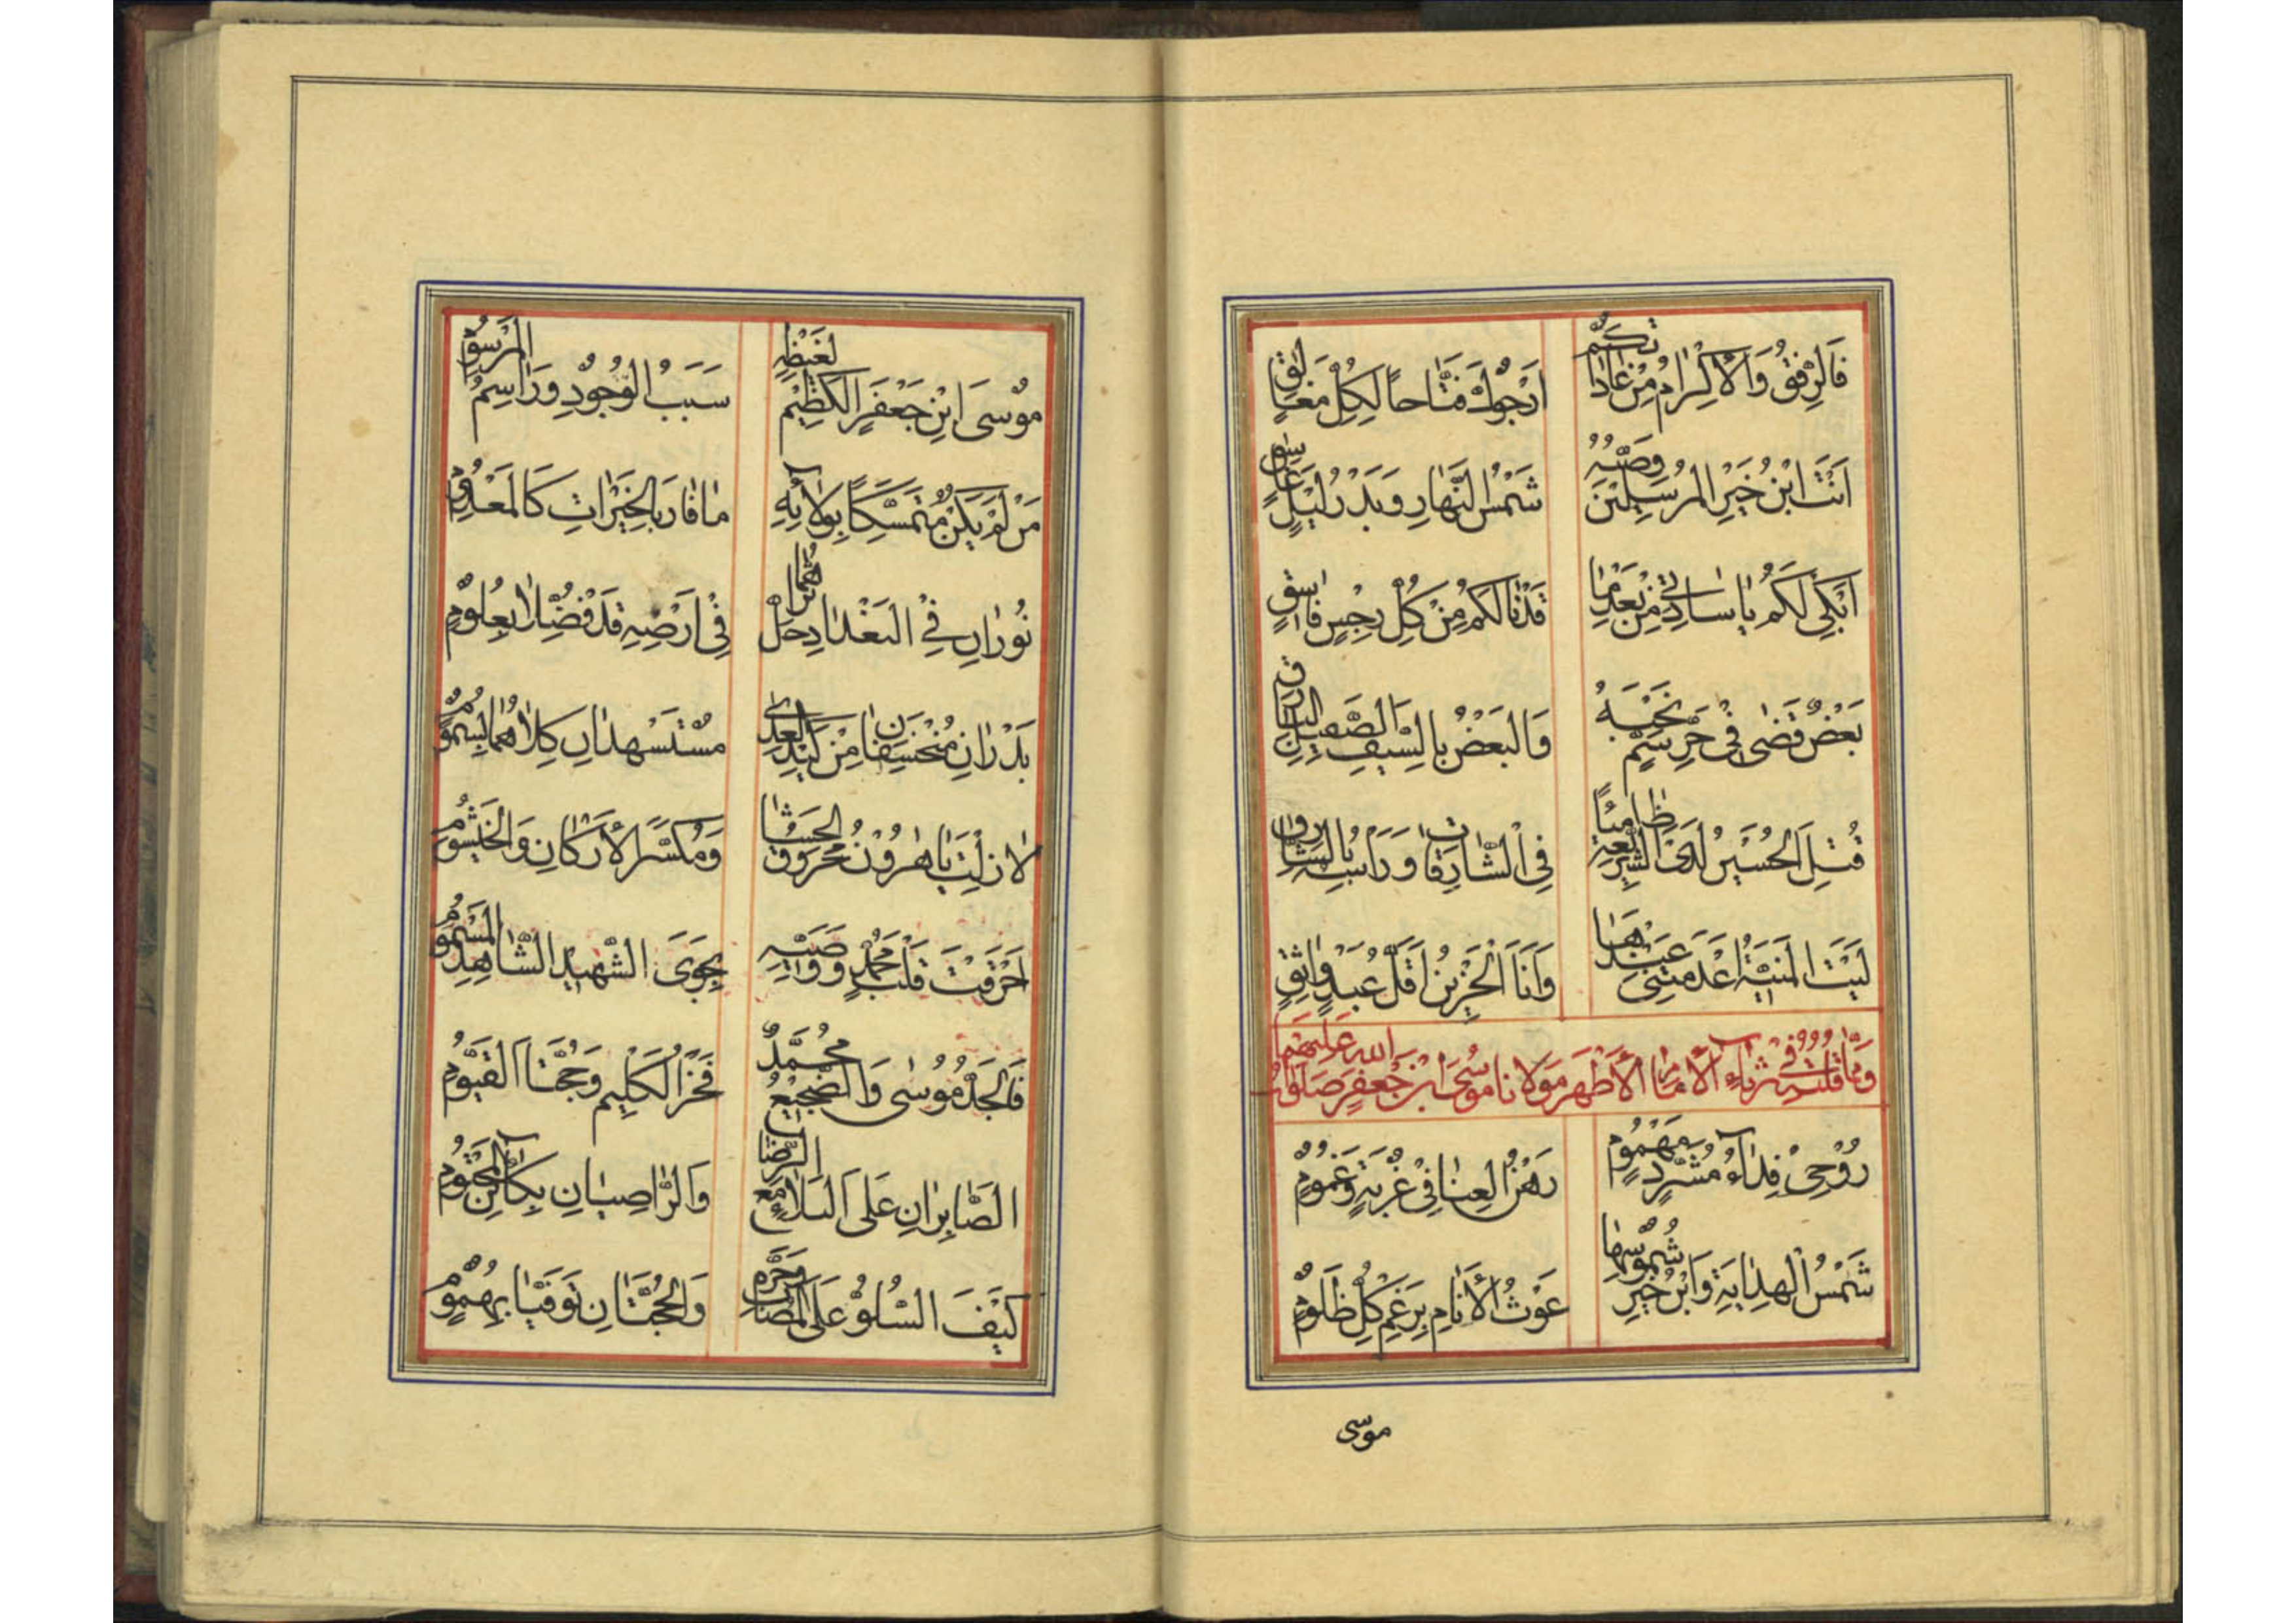 فَالرِّفْقُ وَالْأِكْرَامُ مِنْ عَادَاتِكُمْ اَرْجُوكَ فَتَّاحاً لِكُلِّ مَغَالِقٍ
اَنْتَ ابْنُ خَيْرِ الْمُرْسَلِينَ وَصِيِّهِ شَمْسُ النَّهَارِ وَبَدْرُ لَيْلٍ غَاسِقٍ
اَبْكِي لَكُمْ يَا سَادَتِي مِنْ بَعْدِ مَا قَدْ نَالَكُمْ مِنْ كُلِّ رِجْسٍ فَاسِقٍ
بَعْضٌ قَضَى فِي حَرِّ سَمٍّ نَحْبَهُ وَالْبَعْضُ بِالسَّيْفِ الصَّقِيلِ الْبَارِقِ
قُتِلَ الْحُسَيْنُ لَدَى الشَّرِيعَةِ ظَامِئاً فِي الشَّارِقَاتِ وَرَأْسُهُ بِالشَّارِقِ
لَيْتَ الْمَنِيَّةَ اَعْدَمَتْنِي عِنْدَهَا وَاَنَا الْحَزِينُ اَقَلُّ عَبْدٍ وَاثِقٍ
وَمِمَّا قُلْتُ فِي رِثَاءِ الْأِمَامِ الْأَطْهَرِ مَوْلَانَا مُوسَى ابْنِ جَعْفَرٍ صَلَوَاتُ اللهِ عَلَيْهِمَا
رُوحِي فِدَاءُ مُشَرَّدٍ مَهْمُومٍ رَهْنُ الْعِنَا فِي غُرْبَةٍ وَغُمُومٍ
شَمْسُ الْهِدَايَةِ وَابْنُ خَيْرِ شُمُوسِهَا غَوْثُ الْأَنَامِ بِرَغْمِ كُلِّ ظَلُومٍ
موسى
مُوسَى ابْنِ جَعْفَرٍ الْكَظِيمِ لِغَيْظِهِ سَبَبُ الْوُجُودِ وَرَاسِمُ الْمَرْسُومِ
مَنْ لَمْ يَكُنْ مُتَمَسِّكاً بِوِلَائِهِ مَا فَازَ بِالْخَيْرَاتِ كَالْمَعْدُومِ
نُورَانِ فِي الْبَغْدَادِ حَلَّ ثَرَاهُمَا فِي اَرْضِهِ قَدْ فُضِّلَا بِعُلُومٍ
بَدْرَانِ مُنْخَسِفَانِ مِنْ كَيْدِ الْعِدَى مُسْتَشْهَدَانِ كِلَاهُمَا بِسُمُومٍ
لَا زِلْتَ يَا هٰرُونُ مَحْرُوقَ الْحَشَا وَمُكَسَّرَ الْأَرْكَانِ وَالْخَيْشُومِ
اَحْرَقْتَ قَلْبَ مُحَمَّدٍ وَوَصِيِّهِ بِجَوَى الشَّهِيدِ الشَّاهِدِ الْمَسْمُومِ
فَالْجَدُّ مُوسَى وَالضَّجِيعُ مُحَمَّدٌ فَخْرُ الْكَلِيمِ وَحُجَّتَا الْقَيُّومِ
الصَّابِرَانِ عَلَى الْبَلَاءِ مَعَ الرِّضَا وَالرَّاضِيَانِ بِكَائِنِ الْمَحْتُومِ
كَيْفَ السُّلُوُّ عَلَى الْمُصَابِ وَحَرِّهِ وَالْحُجَّتَانِ تُوُفِّيَا بِهُمُومٍ